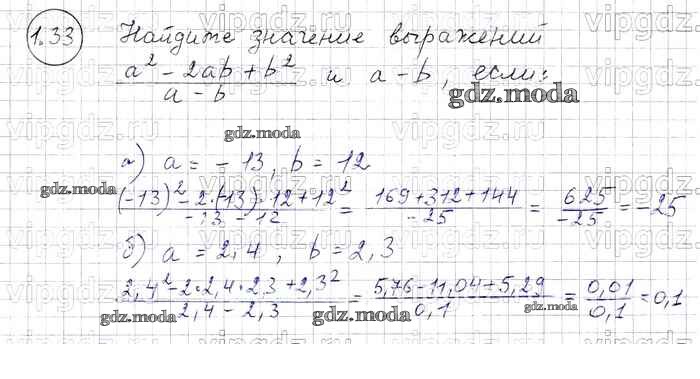 1.33 Найдите значение выражений
(a² - 2ab + b²)/(a - b) и a - b, если:
а) a = -13, b = 12
((-13)² - 2·(-13)·12 + 12²)/(-13 - 12) = (169+312+144)/(-25) = 625/(-25) = -25
б) a = 2,4, b = 2,3
(2,4² - 2·2,4·2,3 + 2,3²)/(2,4 - 2,3) = (5,76 - 11,04 + 5,29)/(0,1) = 0,01/0,1 = 0,1
gdz.moda
gdz.moda
gdz.moda
gdz.moda
gdz.moda
gdz.moda
vipgdz.ru